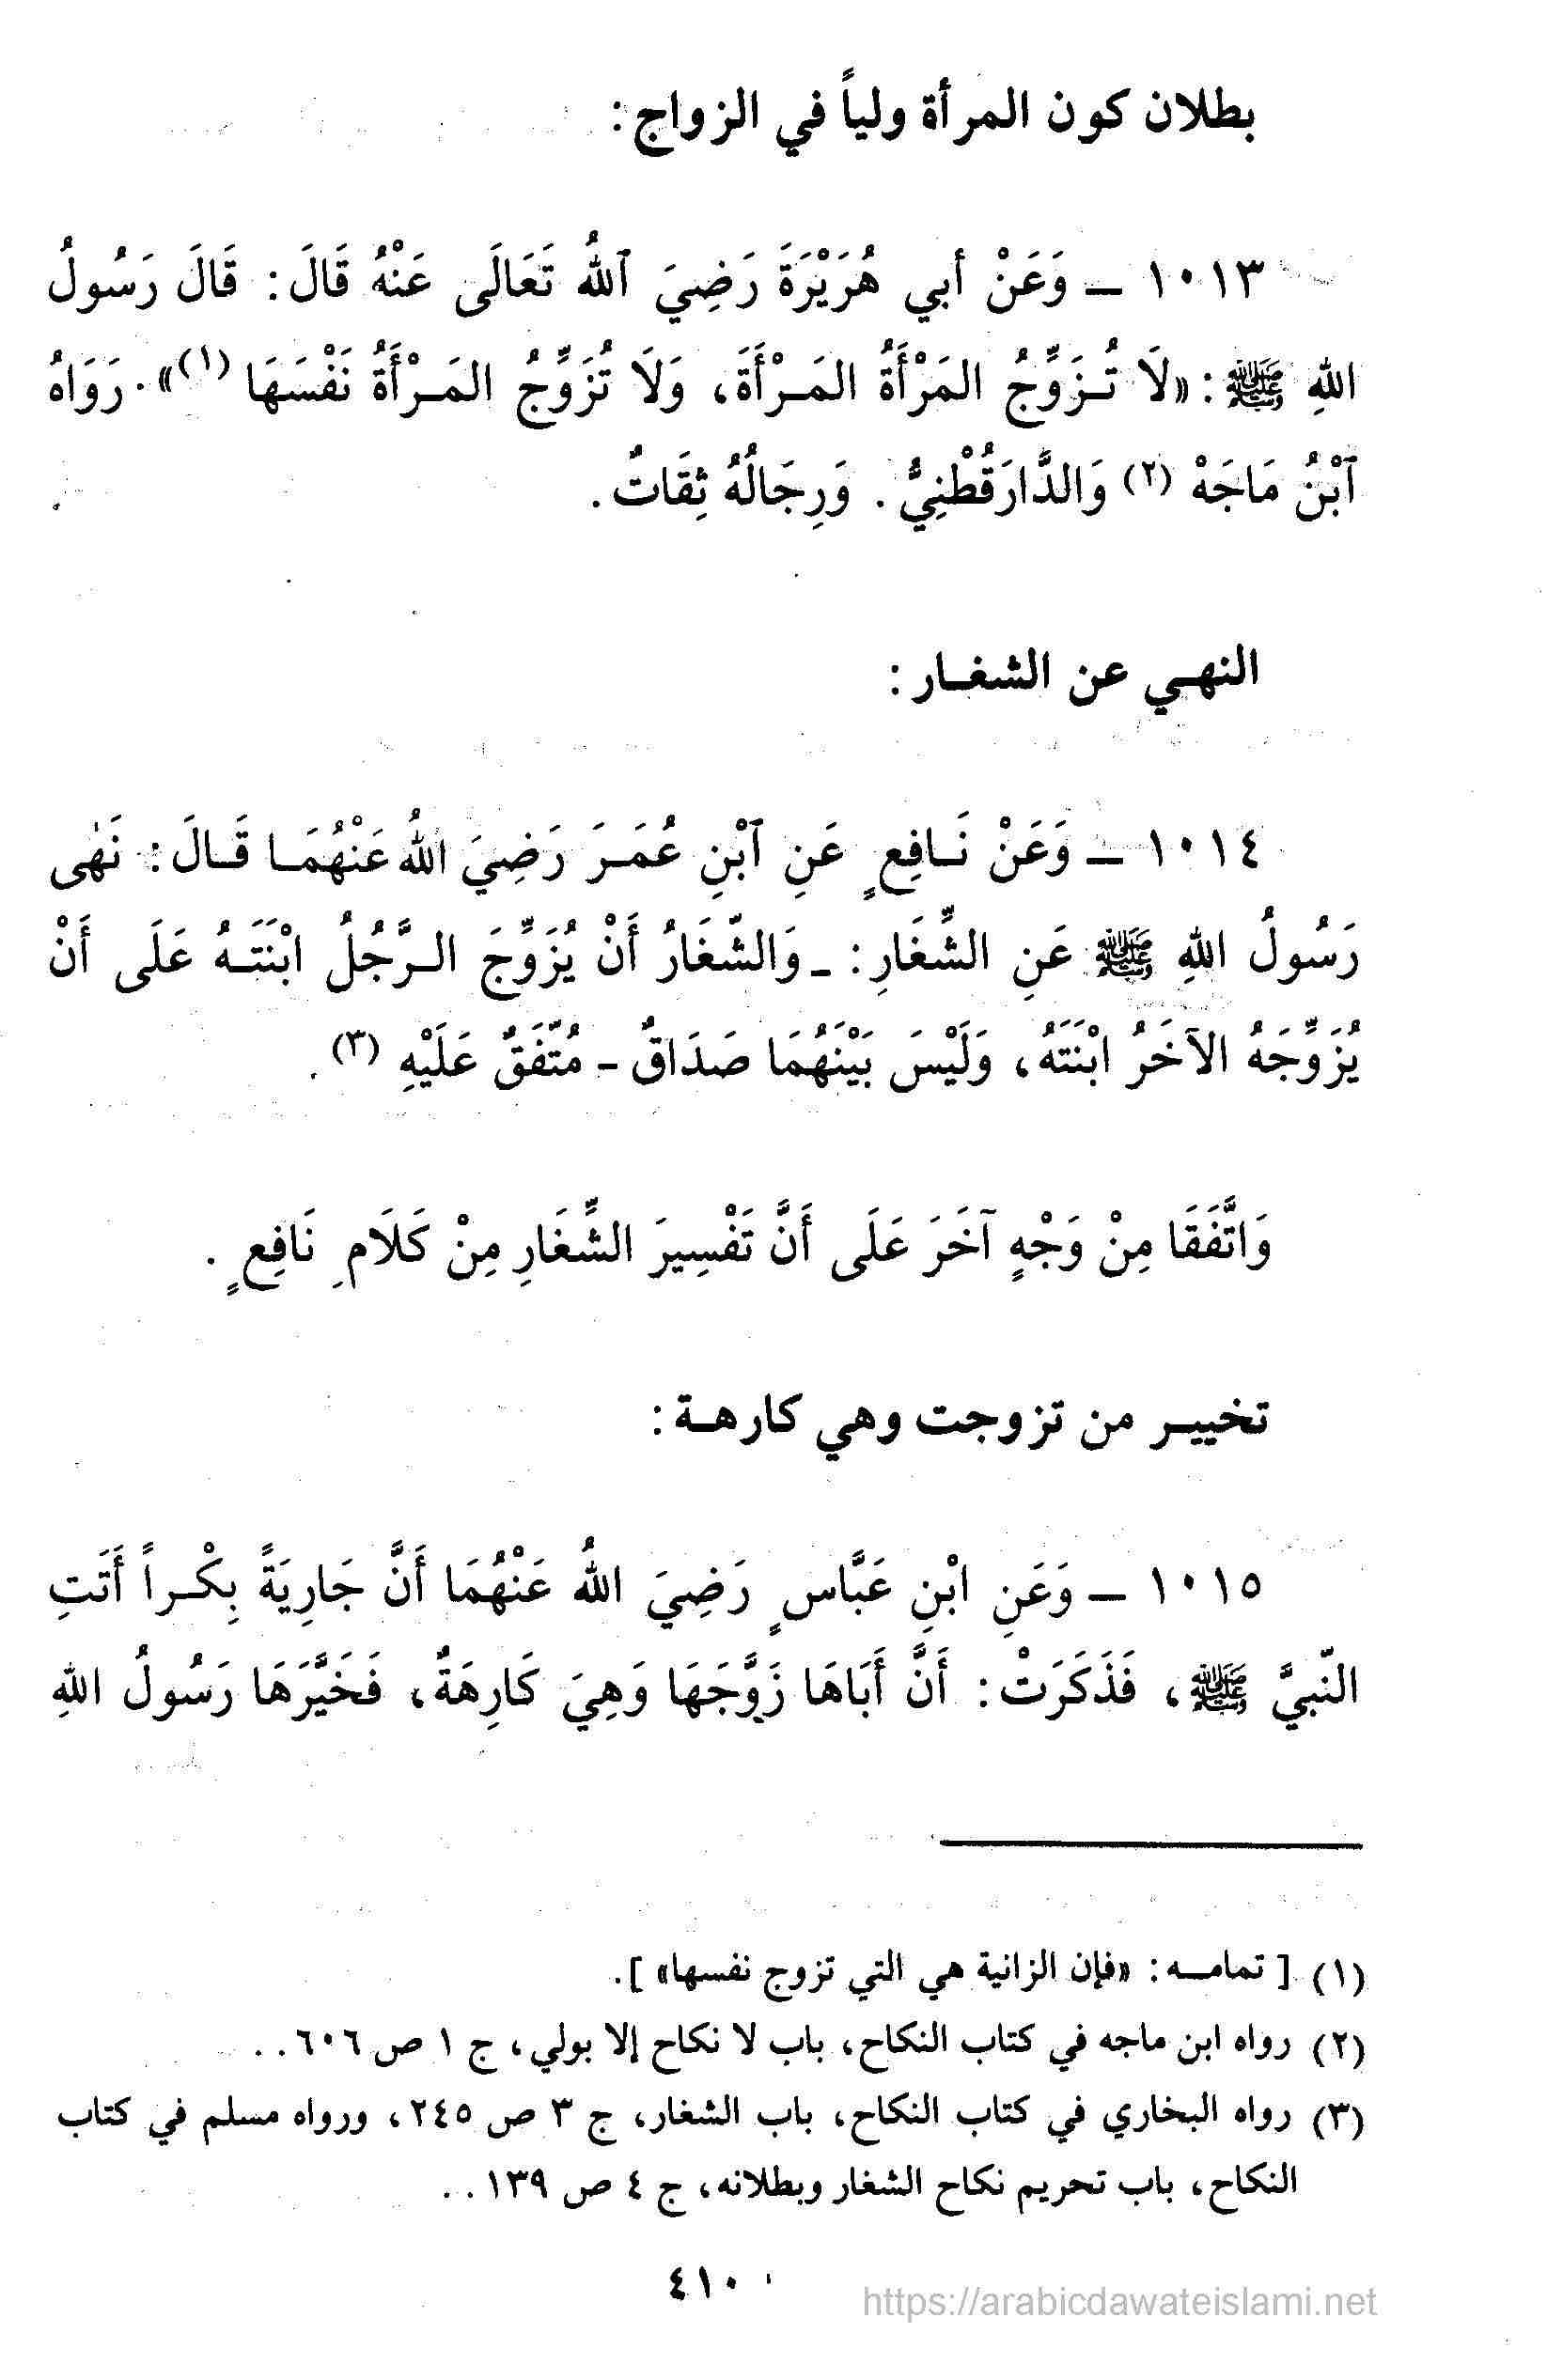 بطلان كون المرأة ولياً في الزواج:
١٠١٣ ــ وَعَنْ أبي هُرَيْرَةَ رَضِيَ ٱللهُ تَعَالَى عَنْهُ قَالَ: قَالَ رَسُولُ
اللهِ ﷺ: «لَا تُـزَوِّجُ المَرْأَةُ المَـرْأَةَ، وَلَا تُزَوِّجُ المَـرْأَةُ نَفْسَهَا (١)». رَوَاهُ
ٱبْنُ مَاجَهْ (٢) وَالدَّارَقُطْنِيُّ. وَرِجَالُهُ ثِقَاتٌ.
النهـي عن الشغـار:
١٠١٤ ــ وَعَنْ نَـافِعٍ عَنِ ٱبْنِ عُمَـرَ رَضِيَ اللهُ عَنْهُمَـا قَـالَ: نَهٰى
رَسُولُ اللهِ ﷺ عَنِ الشِّغَارِ: ـ وَالشّغَارُ أَنْ يُزَوِّجَ الـرَّجُلُ ابْنَتَـهُ عَلَى أَنْ
يُزَوِّجَهُ الآخَرُ ابْنَتَهُ، وَلَيْسَ بَيْنَهُمَا صَدَاقٌ - مُتَّفَقٌ عَلَيْهِ (٣).
وَاتَّفَقَا مِنْ وَجْهٍ آخَرَ عَلَى أَنَّ تَفْسِيرَ الشِّغَارِ مِنْ كَلَامِ نَافِعٍ.
تخييـر من تزوجت وهي كارهـة:
١٠١٥ ــ وَعَنِ ابْنِ عَبَّاسٍ رَضِيَ اللهُ عَنْهُمَا أَنَّ جَارِيَةً بِكْـراً أَتَتِ
النّبيَّ ﷺ، فَذَكَرَتْ: أَنَّ أَبَاهَا زَوَّجَهَا وَهِيَ كَارِهَةٌ، فَخَيَّرَهَا رَسُولُ اللهِ
(١) [ تمامـــه: «فإن الزانية هي التي تزوج نفسها» ].
(٢) رواه ابن ماجه في كتاب النكاح، باب لا نكاح إلا بولي، ج ١ ص ٦٠٦..
(٣) رواه البخاري في كتاب النكاح، باب الشغار، ج ٣ ص ٢٤٥، ورواه مسلم في كتاب
النكاح، باب تحريم نكاح الشغار وبطلانه، ج ٤ ص ١٣٩..
٤١٠
https://arabicdawateislami.net